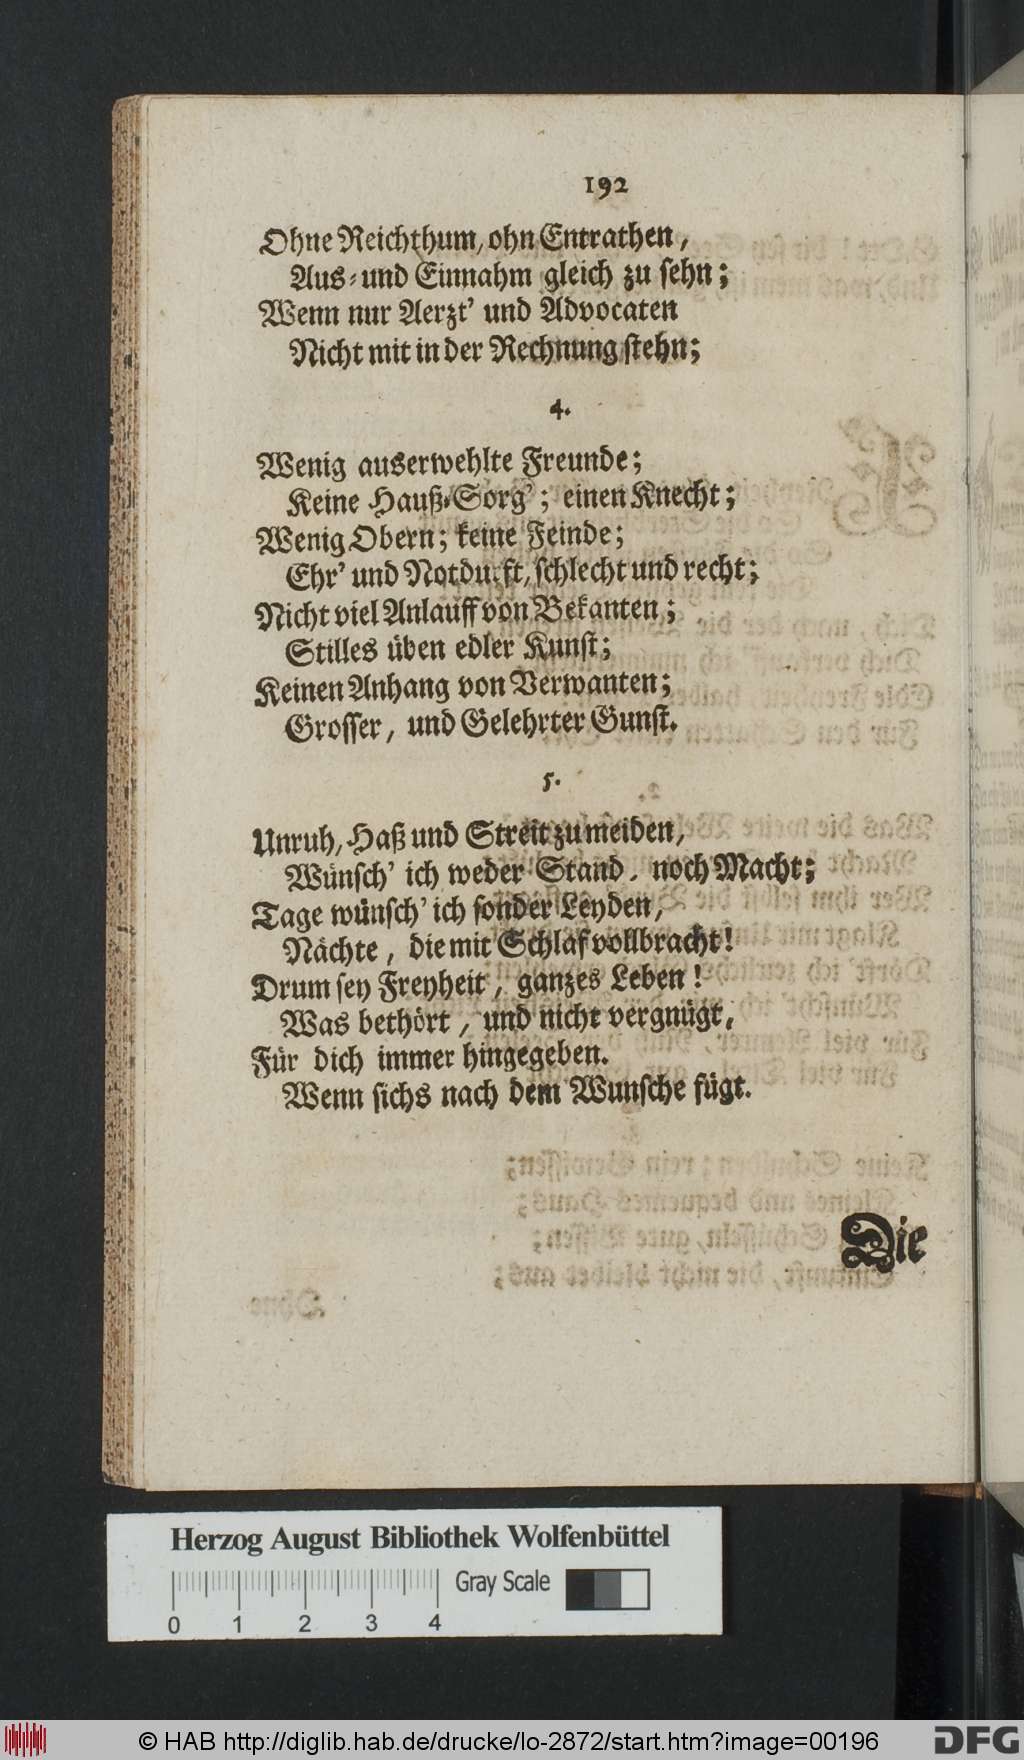 192
Ohne Reichthum, ohn Entrathen,
Aus- und Einnahm gleich zu sehn;
Wenn nur Aerzt' und Advocaten
Nicht mit in der Rechnung stehn;
4.
Wenig auserwehlte Freunde;
Keine Hauß-Sorg'; einen Knecht;
Wenig Obern; keine Feinde;
Ehr' und Notdurft, schlecht und recht;
Nicht viel Anlauff von Bekanten;
Stilles üben edler Kunst;
Keinen Anhang von Verwanten;
Grosser, und Gelehrter Gunst.
5.
Unruh, Haß und Streit zu meiden,
Wünsch' ich weder Stand, noch Macht;
Tage wünsch' ich sonder Leyden,
Nächte, die mit Schlaf vollbracht!
Drum sey Freyheit, ganzes Leben!
Was bethört, und nicht vergnügt,
Für dich immer hingegeben.
Wenn sichs nach dem Wunsche fügt.
Die
Herzog August Bibliothek Wolfenbüttel
Gray Scale
0 1 2 3 4
© HAB http://diglib.hab.de/drucke/lo-2872/start.htm?image=00196
DFG